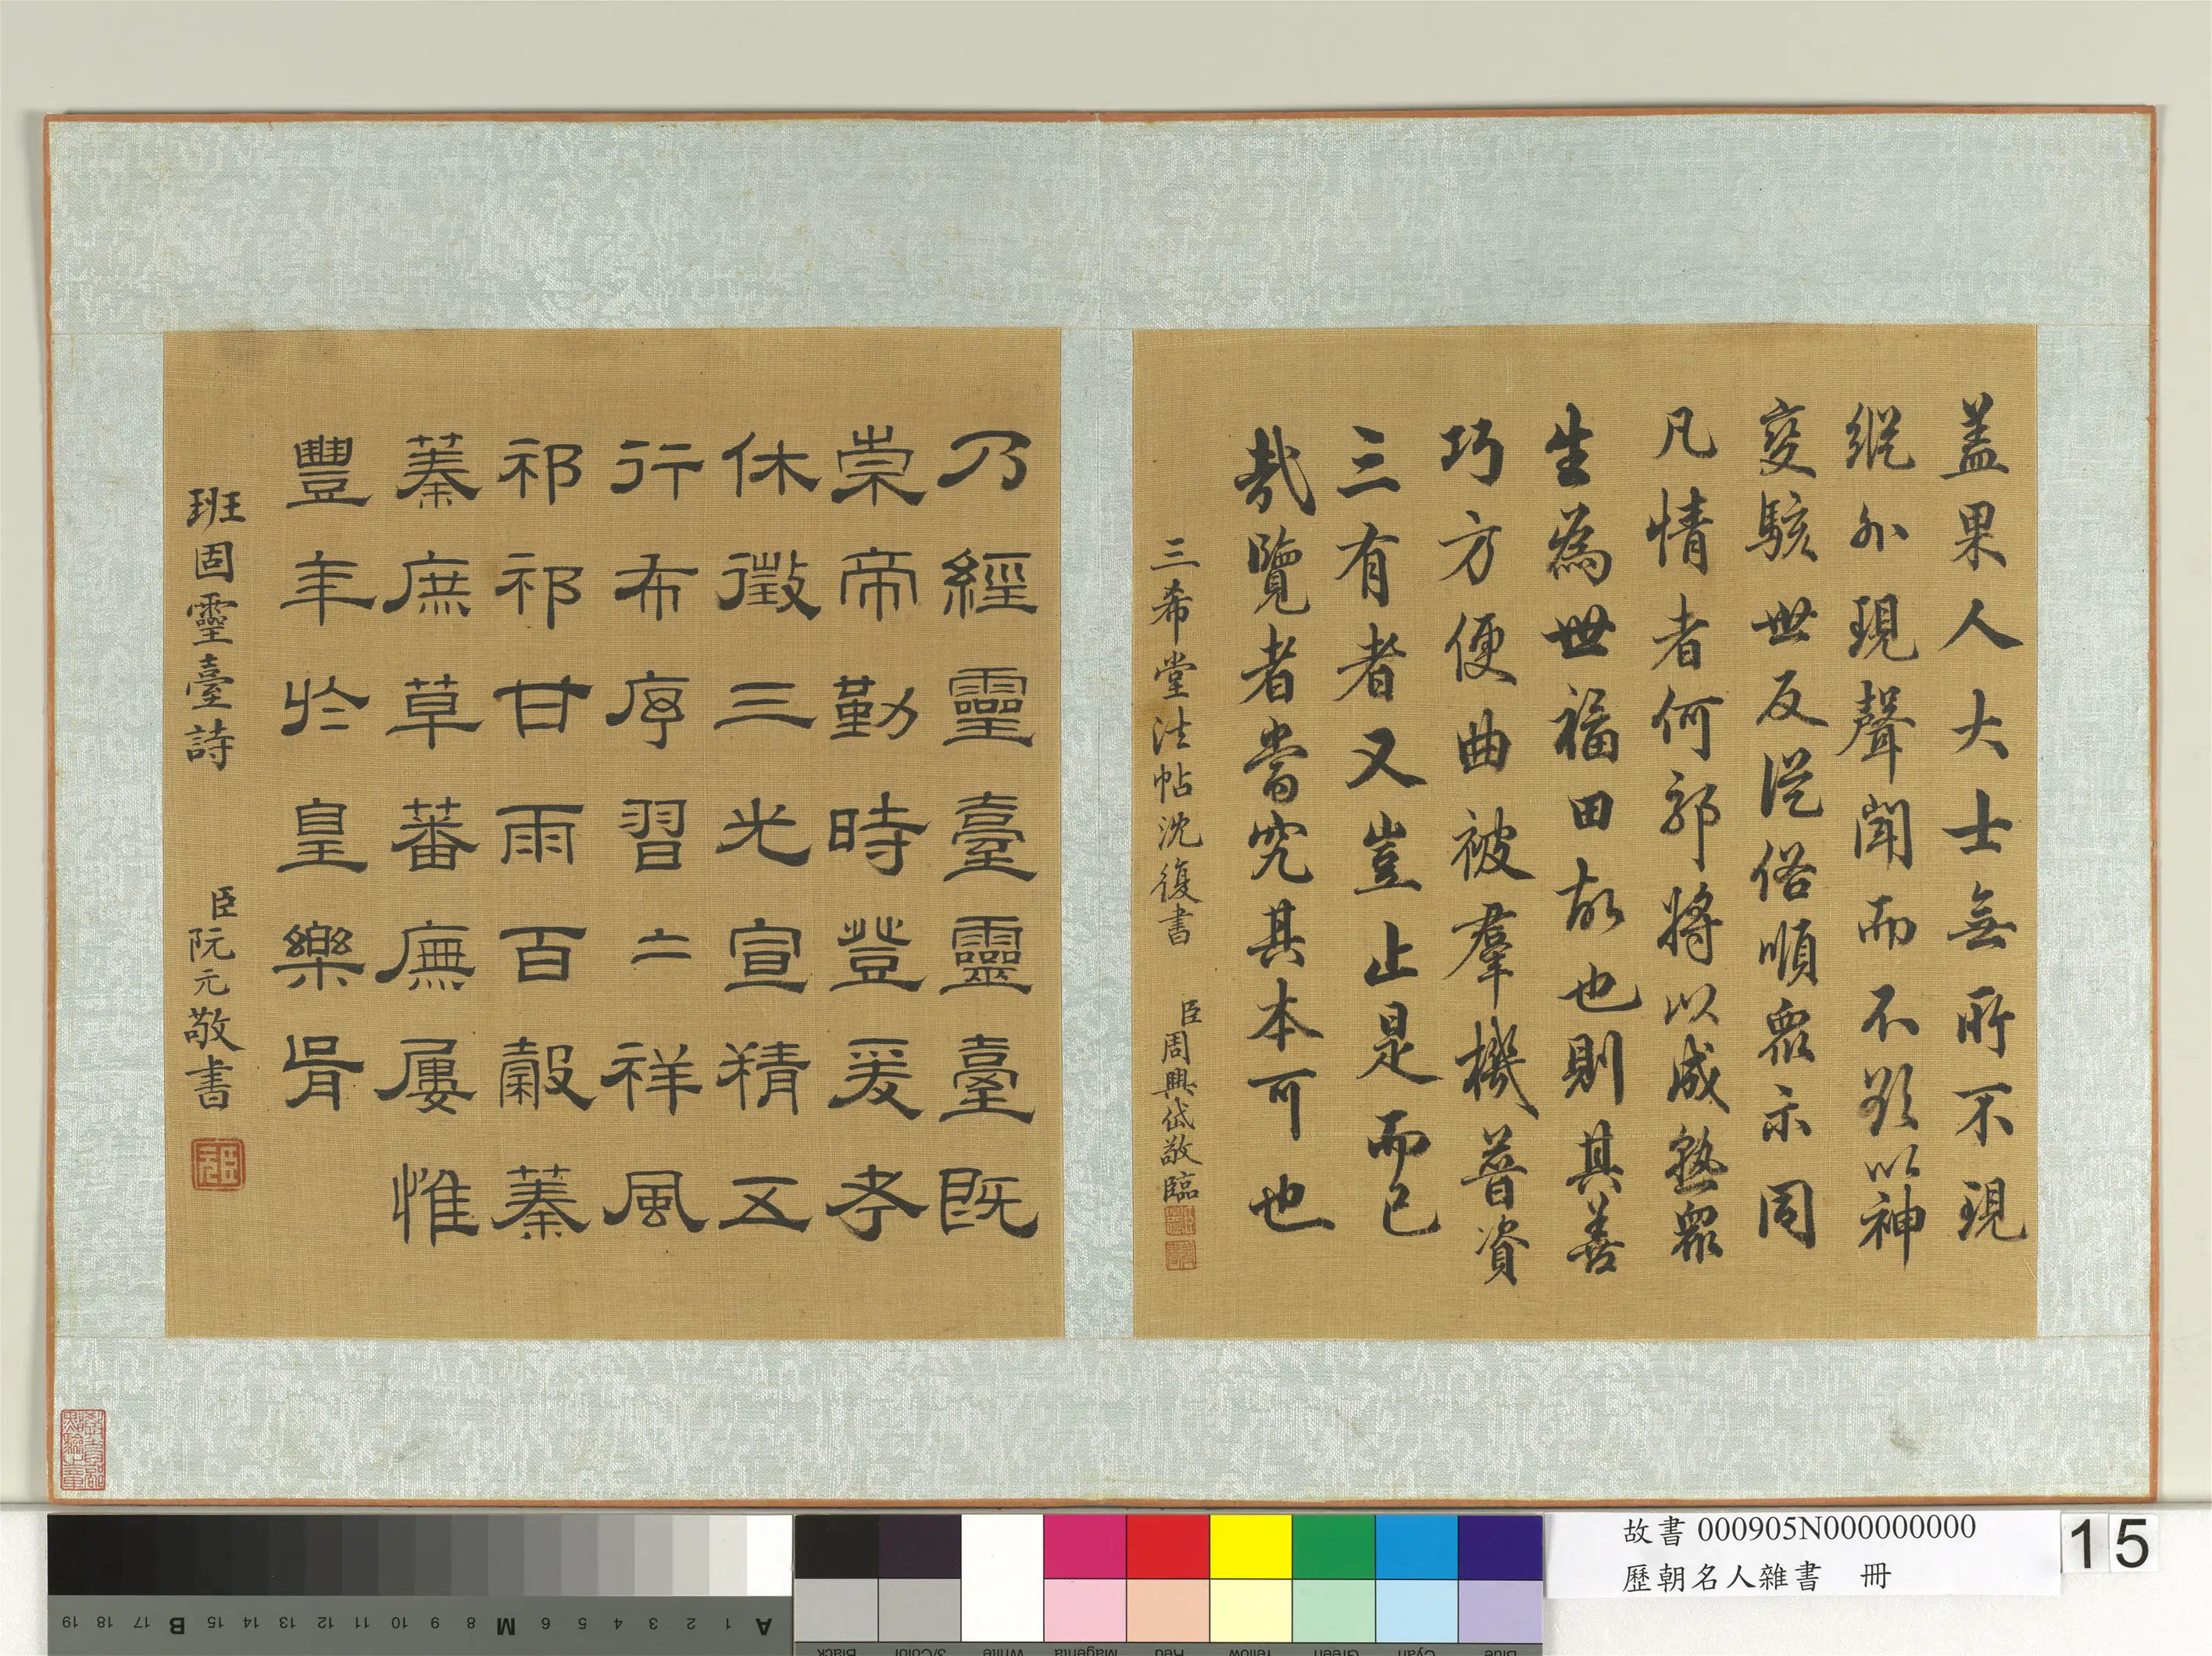 蓋果人大士無所不現
縱外現聲聞而不顯以神
變駭世反從俗順眾示同
凡情者何郭將以成熟眾
生為世福田故也則其善
巧方便曲被羣機普資
三有者又豈止是而已
哉覽者當究其本可也
三希堂法帖沈復書
臣周興岱敬臨
乃經靈臺靈臺既
崇帝勤時登爰考
休徵三光宣精五
行布序習二祥風
祁祁甘雨百穀蓁
蓁庶草蕃廡屢惟
豐年於皇樂胥
班固靈臺詩
臣阮元敬書
臣元
故書 000905N000000000
歷朝名人雜書 冊
15
A 1 2 3 4 5 6 M 8 9 10 11 12 13 14 15 B 17 18 19
Black 3/Color White Magenta Red Yellow Green Cyan Blue